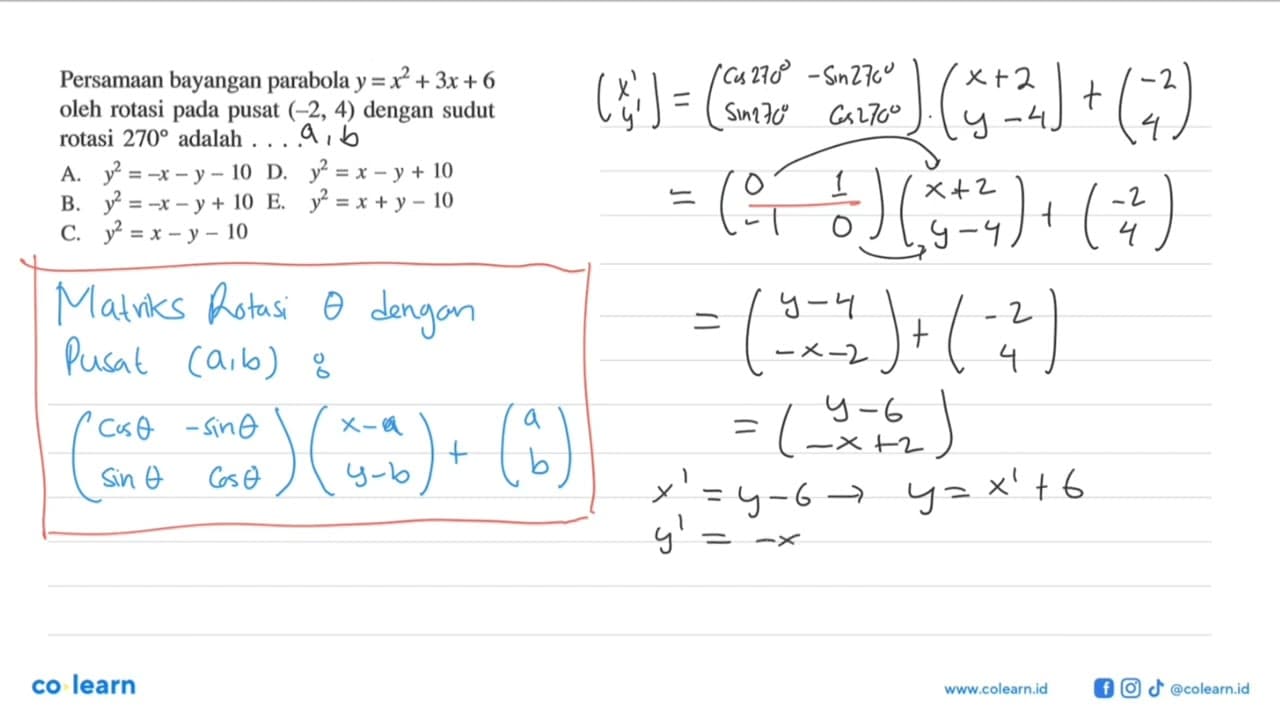 Persamaan bayangan parabola y = x² + 3x + 6
oleh rotasi pada pusat (–2, 4) dengan sudut
rotasi 270° adalah . . . .
a, b
A. y² = –x – y – 10 D. y² = x – y + 10
B. y² = –x – y + 10 E. y² = x + y – 10
C. y² = x – y – 10
Matriks Rotasi θ dengan
Pusat (a,b) :
(cos θ -sin θ) (x-a) + (a)
(sin θ cos θ) (y-b) (b)
(x') = (Cos 270° -Sin 270°) . (x+2) + (-2)
(y') (Sin 270° Cos 270°) (y-4) (4)
= (0 1) (x+2) + (-2)
(-1 0) (y-4) (4)
= (y-4) + (-2)
(-x-2) (4)
= (y-6)
(-x+2)
x' = y-6 → y = x' + 6
y' = -x
co learn
www.colearn.id
@colearn.id